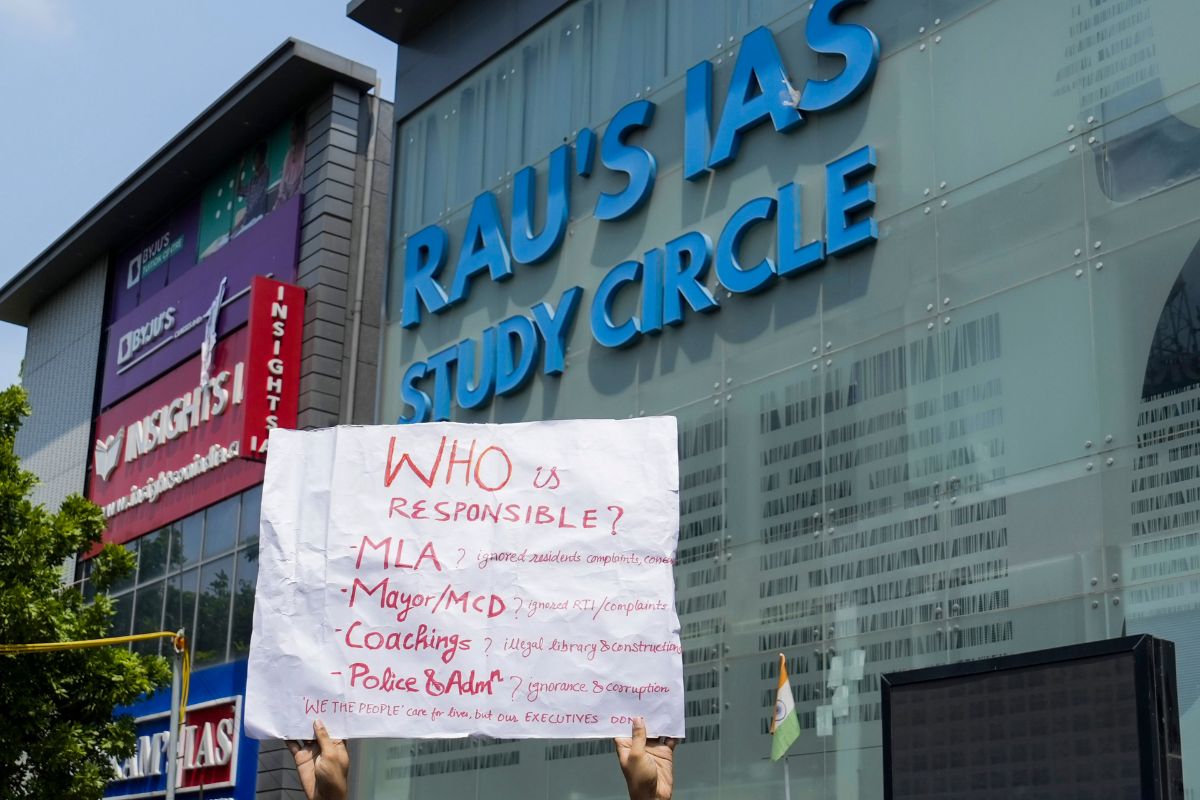 RAU'S IAS
STUDY CIRCLE
BYJU'S
TUITION CENTRE
BYJU'S
INSIGHTS I
INSIGHTS IA
WHO is
RESPONSIBLE?
- MLA ? ignored residents complaints,
- Mayor/MCD ? ignored RTI/complaints
- Coachings ? illegal library & construction
- Police & Admn ? ignorance & corruption
'WE THE PEOPLE' care for lives, but our EXECUTIVES DON
IAS